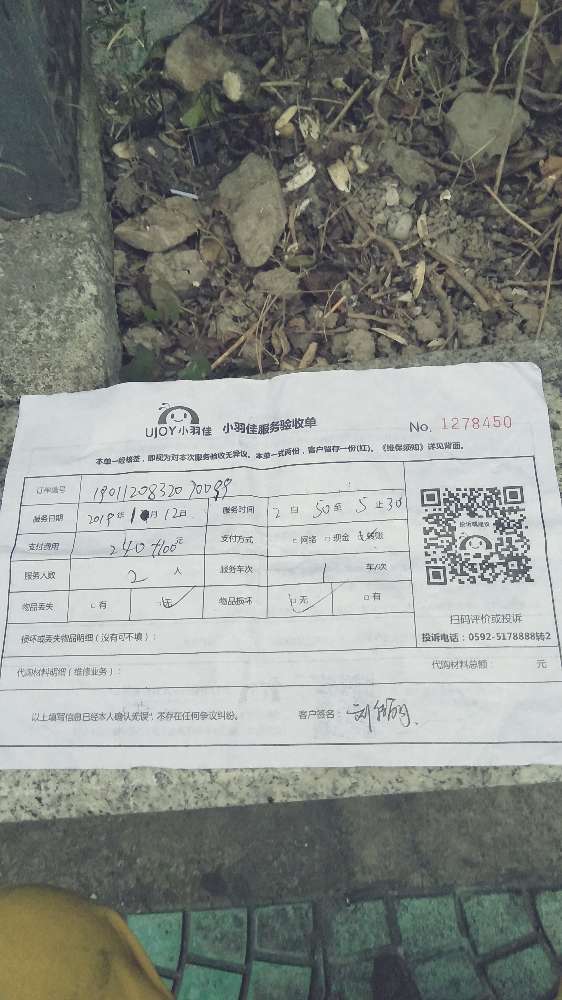 UJOY小羽佳 小羽佳服务验收单 No. 1278450
本单一经签签，即视为对本次服务验收无异议。本单一式两份，客户留存一份(红)。《维保须知》详见背面。
订单编号 1901120832070099
服务日期 2019年 1月 12日 服务时间 2 50至 5止30
支付费用 240+100元 支付方式 网络 现金 转账
服务人数 2 人 服务车次 1 车/次
物品丢失 有 无 物品损坏 无 有
扫码评价或投诉
投诉电话：0592-5178888转2
损坏或丢失物品明细（没有可不填）：
代购材料明细（维修业务）： 代购材料总额： 元
以上填写信息已经本人确认无误，不存在任何争议纠纷。 客户签名：